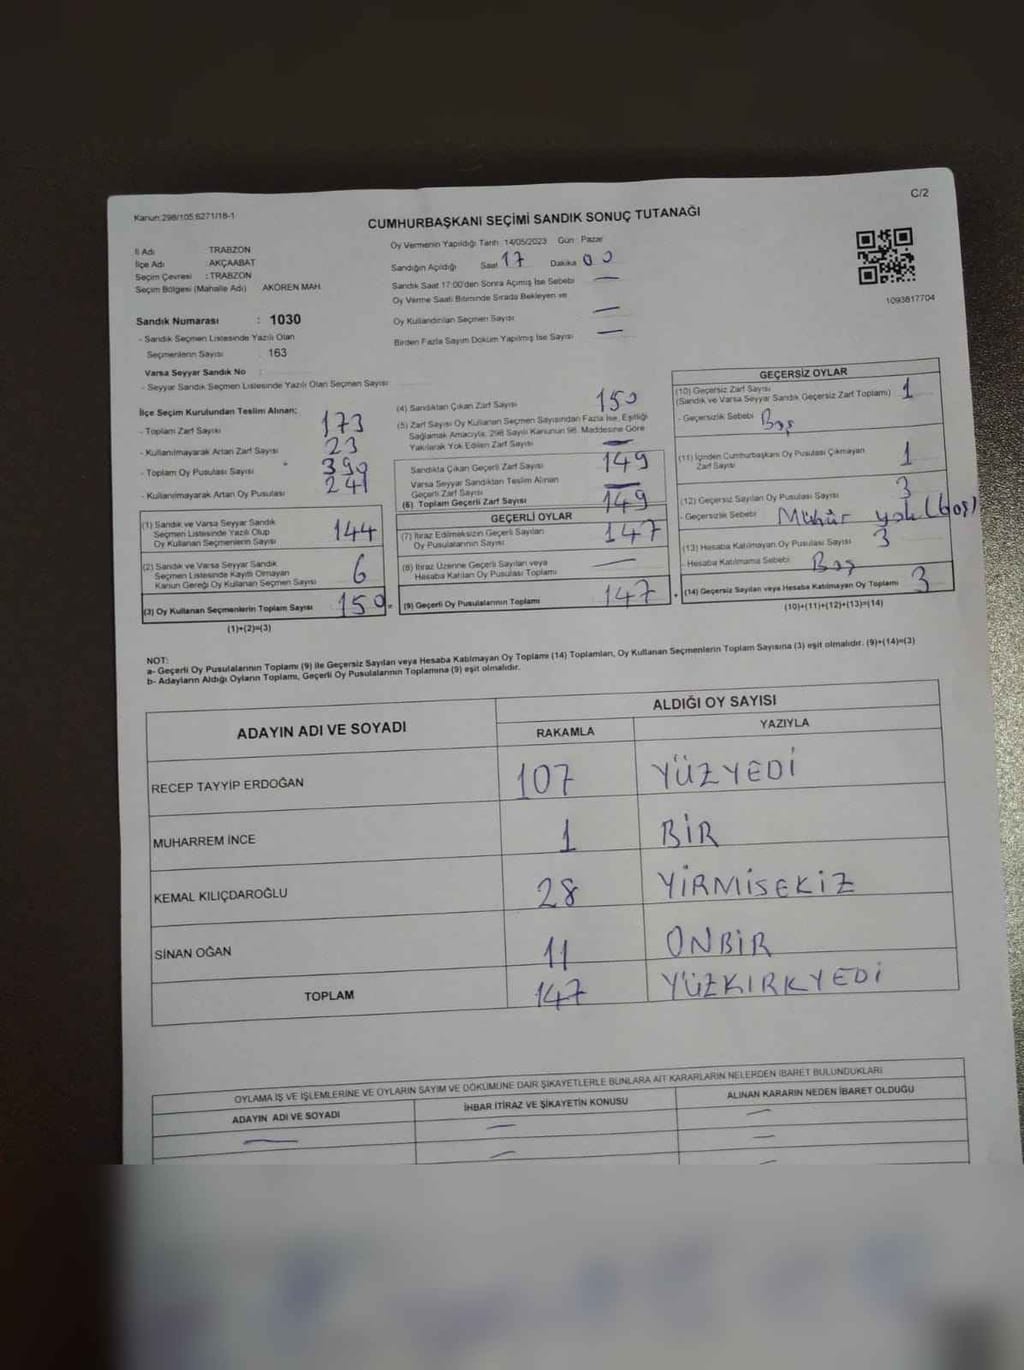 C/2
Kanun:298/105 6271/18-1
CUMHURBAŞKANI SEÇİMİ SANDIK SONUÇ TUTANAĞI
İl Adı TRABZON
İlçe Adı :AKÇAABAT
Seçim Çevresi :TRABZON
Seçim Bölgesi (Mahalle Adı) AKÖREN MAH.
Oy Vermenin Yapıldığı Tarih 14/05/2023 Gün : Pazar
Sandığın Açıldığı Saat 17 Dakika 00
Sandık Saat 17:00'den Sonra Açımış İse Sebebi —
Oy Verme Saati Bitiminde Sırada Bekleyen ve
Oy Kullandırılan Seçmen Sayısı —
Birden Fazla Sayım Döküm Yapılmış İse Sayısı —
1093817704
Sandık Numarası : 1030
- Sandık Seçmen Listesinde Yazılı Olan
Seçmenlerin Sayısı : 163
Varsa Seyyar Sandık No :
- Seyyar Sandık Seçmen Listesinde Yazılı Olan Seçmen Sayısı
İlçe Seçim Kurulundan Teslim Alınan;
- Toplam Zarf Sayısı 173
- Kullanılmayarak Artan Zarf Sayısı 23
- Toplam Oy Pusulası Sayısı
- Kullanılmayarak Artan Oy Pusulası 241
(1) Sandık ve Varsa Seyyar Sandık
Seçmen Listesinde Yazılı Olup
Oy Kullanan Seçmenlerin Sayısı 144
(2) Sandık ve Varsa Seyyar Sandık
Seçmen Listesinde Kayıtlı Olmayan
Kanun Gereği Oy Kullanan Seçmen Sayısı 6
(3) Oy Kullanan Seçmenlerin Toplam Sayısı 150
(1)+(2)=(3)
(4) Sandıktan Çıkan Zarf Sayısı 150
(5) Zarf Sayısı Oy Kullanan Seçmen Sayısından Fazla İse, Eşitliği
Sağlamak Amacıyla, 298 Sayılı Kanunun 98. Maddesine Göre
Yakılarak Yok Edilen Zarf Sayısı —
Sandıkta Çıkan Geçerli Zarf Sayısı 149
Varsa Seyyar Sandıktan Teslim Alınan
Geçerli Zarf Sayısı —
(6) Toplam Geçerli Zarf Sayısı 149
GEÇERLİ OYLAR
(7) İtiraz Edilmeksizin Geçerli Sayılan
Oy Pusulalarının Sayısı 147
(8) İtiraz Üzerine Geçerli Sayılan veya
Hesaba Katılan Oy Pusulası Toplamı —
(9) Geçerli Oy Pusulalarının Toplamı 147
GEÇERSİZ OYLAR
(10) Geçersiz Zarf Sayısı
(Sandık ve Varsa Seyyar Sandık Geçersiz Zarf Toplamı) 1
- Geçersizlik Sebebi Boş
(11) İçinden Cumhurbaşkanı Oy Pusulası Çıkmayan
Zarf Sayısı 1
(12) Geçersiz Sayılan Oy Pusulası Sayısı 3
- Geçersizlik Sebebi Mühür yok (boş)
(13) Hesaba Katılmayan Oy Pusulası Sayısı 3
- Hesaba Katılmama Sebebi Boş
(14) Geçersiz Sayılan veya Hesaba Katılmayan Oy Toplamı 3
(10)+(11)+(12)+(13)=(14)
NOT:
a- Geçerli Oy Pusulalarının Toplamı (9) ile Geçersiz Sayılan veya Hesaba Katılmayan Oy Toplamı (14) Toplamları, Oy Kullanan Seçmenlerin Toplam Sayısına (3) eşit olmalıdır. (9)+(14)=(3)
b- Adayların Aldığı Oyların Toplamı, Geçerli Oy Pusulalarının Toplamına (9) eşit olmalıdır.
ADAYIN ADI VE SOYADI ALDIĞI OY SAYISI
RAKAMLA YAZIYLA
RECEP TAYYİP ERDOĞAN 107 YÜZYEDİ
MUHARREM İNCE 1 BİR
KEMAL KILIÇDAROĞLU 28 YİRMİSEKİZ
SİNAN OĞAN 11 ONBİR
TOPLAM 147 YÜZKIRKYEDİ
OYLAMA İŞ VE İŞLEMLERİNE VE OYLARIN SAYIM VE DÖKÜMÜNE DAİR ŞİKAYETLERLE BUNLARA AİT KARARLARIN NELERDEN İBARET BULUNDUKLARI
ADAYIN ADI VE SOYADI İHBAR İTİRAZ VE ŞİKAYETİN KONUSU ALINAN KARARIN NEDEN İBARET OLDUĞU
— — —
— —